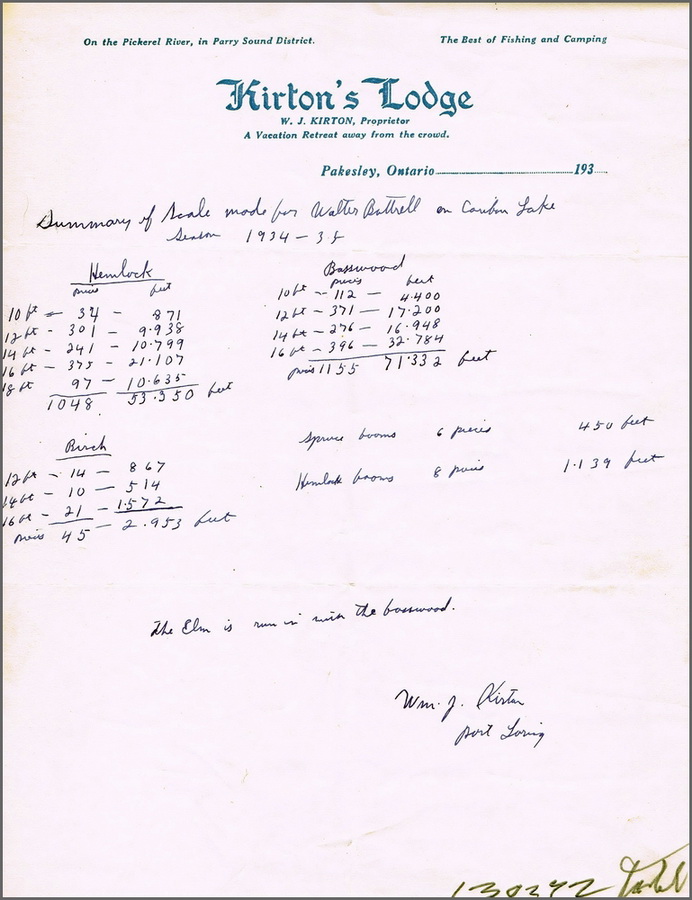 On the Pickerel River, in Parry Sound District. The Best of Fishing and Camping
Kirton's Lodge
W. J. KIRTON, Proprietor
A Vacation Retreat away from the crowd.
Pakesley, Ontario 193
Summary of Scale made for Walter Bottrell on Caribou Lake
Season 1934-35
Hemlock
pieces feet
10 ft - 34 - 871
12 ft - 301 - 9.938
14 ft - 241 - 10.799
16 ft - 375 - 21.107
18 ft 97 - 10.635
1048 53.350 feet
Basswood
pieces feet
10 ft - 112 - 4.400
12 ft - 371 - 17.200
14 ft - 276 - 16.948
16 ft - 396 - 32.784
pieces 1155 71.332 feet
Birch
12 ft - 14 - 867
14 ft - 10 - 514
16 ft - 21 - 1.572
pieces 45 - 2.953 feet
Spruce booms 6 pieces 450 feet
Hemlock booms 8 pieces 1.139 feet
The Elm is run in with the basswood.
Wm. J. Kirton
Port Loring